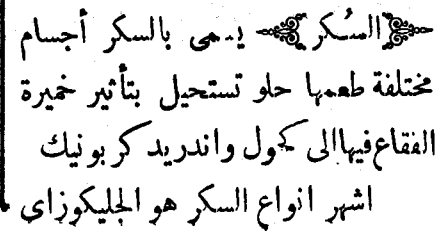 السُكر يسمى بالسكر أجسام
مختلفة طعمها حلو تستحيل بتأثير خميرة
الفقاع فيها الى كحول واندريد كربونيك
اشهر انواع السكر هو الجليكوزاى